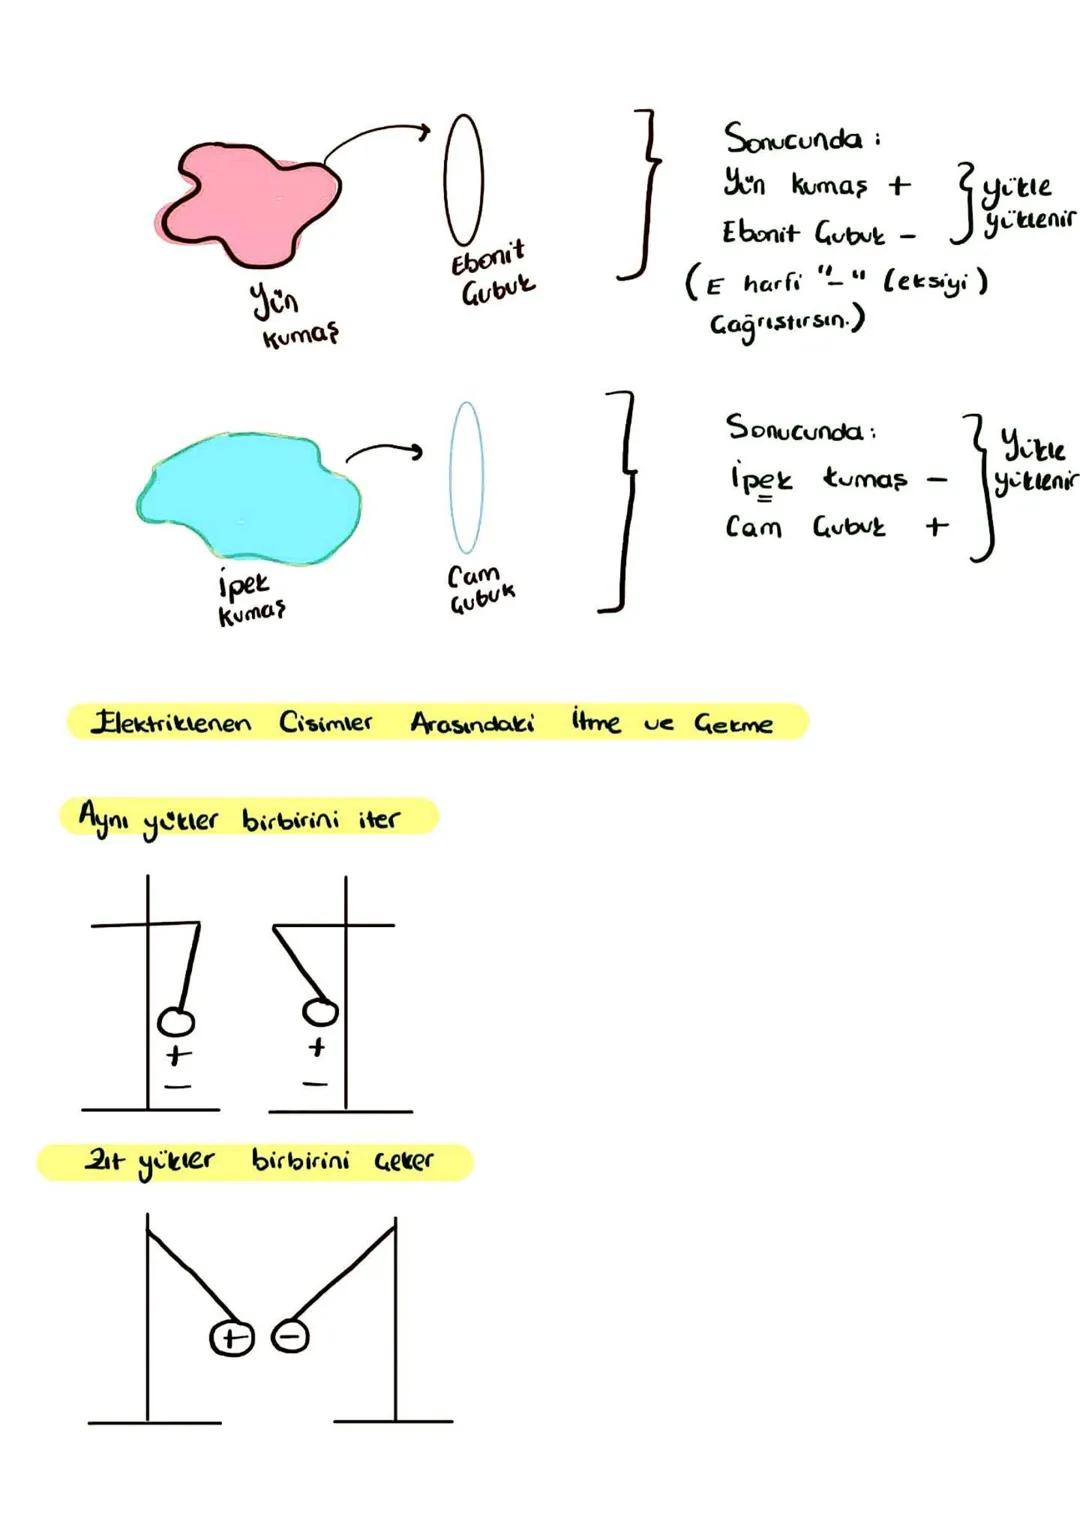 Sonucunda :
Yün kumaş +
Ebonit Çubuk -
yükle
yüklenir
(E harfi "-" (eksiyi)
Çağrıştırsın.)
Ebonit
Çubuk
Yün
kumaş
Sonucunda:
İpek kumaş -
Cam Çubuk +
Yükle
yüklenir
İpek
kumaş
Cam
Çubuk
Elektriklenen Cisimler Arasındaki İtme ve Çekme
Aynı yükler birbirini iter
+ +
- -
Zıt yükler birbirini Çeker
+ -